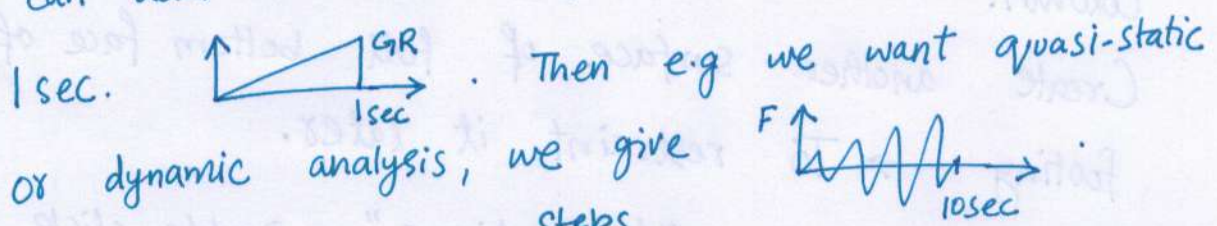 1 sec. GR 1sec . Then e.g we want quasi-static
or dynamic analysis, we give F 10sec .
steps